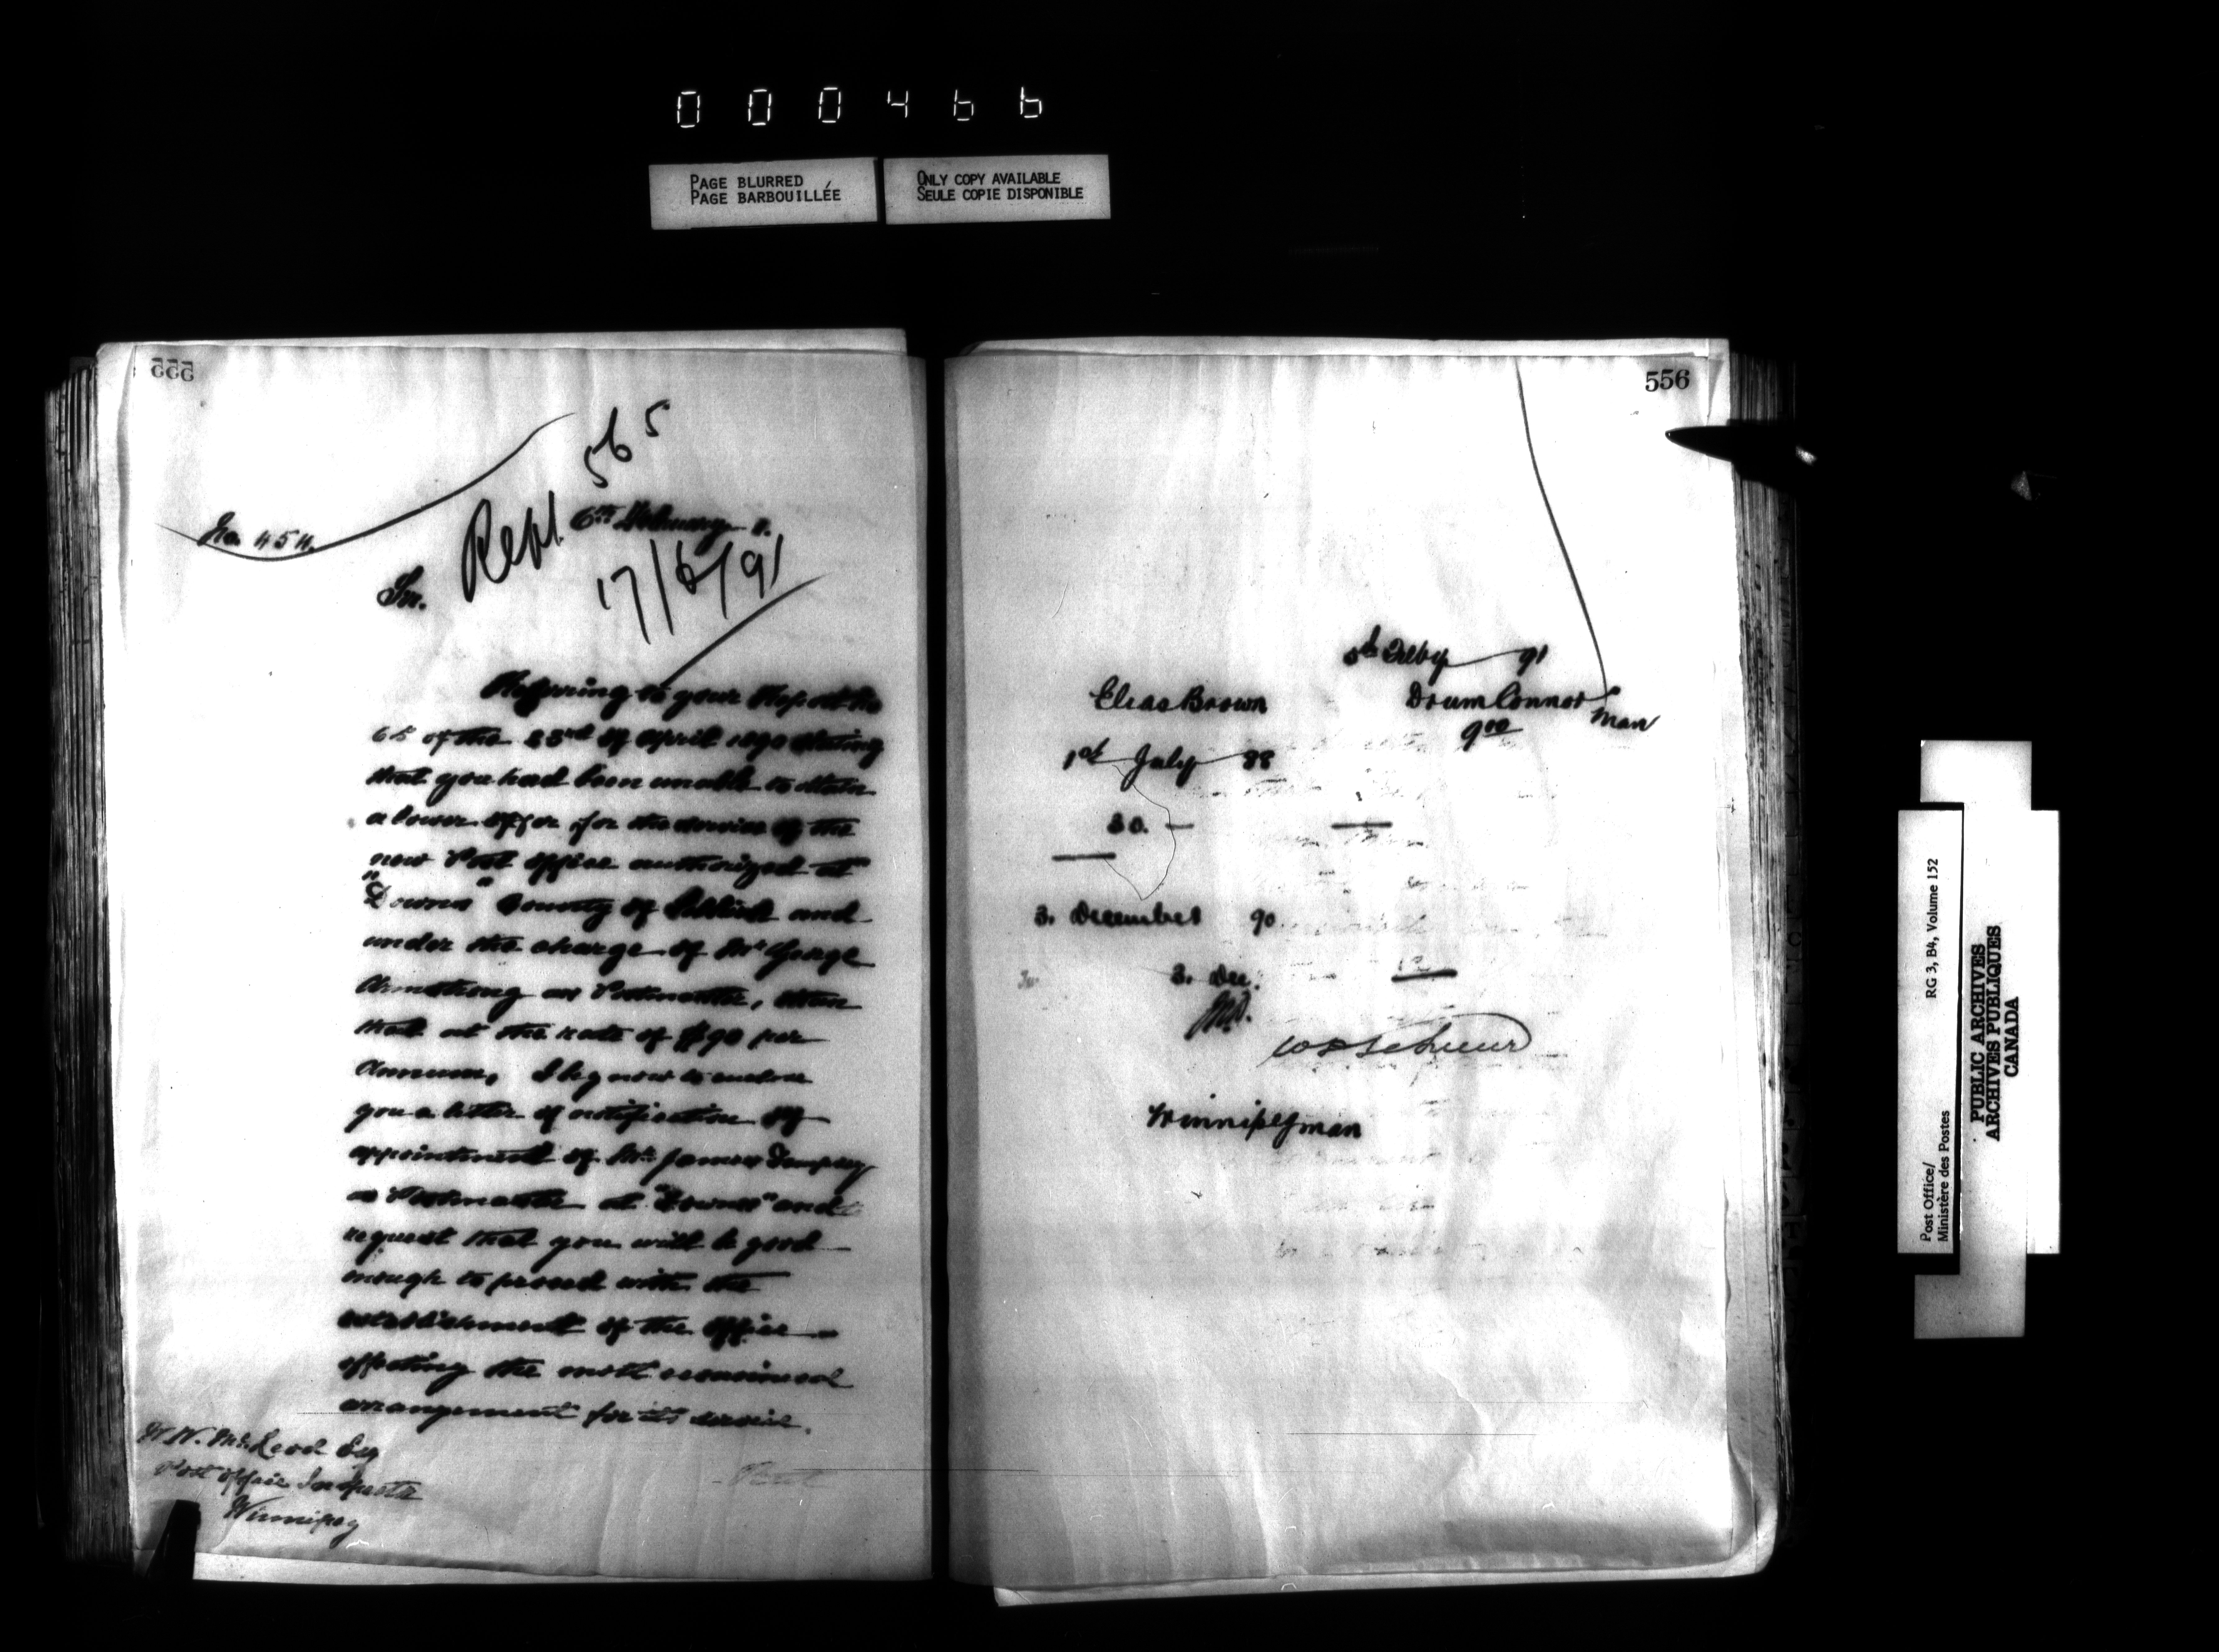 000466
PAGE BLURRED
PAGE BARBOUILLÉE
ONLY COPY AVAILABLE
SEULE COPIE DISPONIBLE
555
565
No. 454.
Rept. 6th February 1.
17/6/91
Sir.
Referring to your Report No
65 of the 23rd of April 1890 stating
that you had been unable to obtain
a lower offer for the service of the
new Post Office authorized at
"Downs" County of Selkirk and
under the charge of Mr George
Armstrong as Postmaster, than
that at the rate of $90 per
Annum, I beg now to enclose
you a letter of notification of
appointment of Mr James
as Postmaster at "Downs" and
request that you will be good
enough to proceed with the
establishment of the office
effecting the most economical
arrangement for its service.
W. W. McLeod Esq
Post Office Inspector
Winnipeg
556
5th Feby 91
Elias Brown
Drum Connor
Man
9 00
1st July 88
20.
3. December 90
3. Dec.
Winnipeg Man
Post Office/
Ministère des Postes
RG 3, B4, Volume 152
PUBLIC ARCHIVES
ARCHIVES PUBLIQUES
CANADA